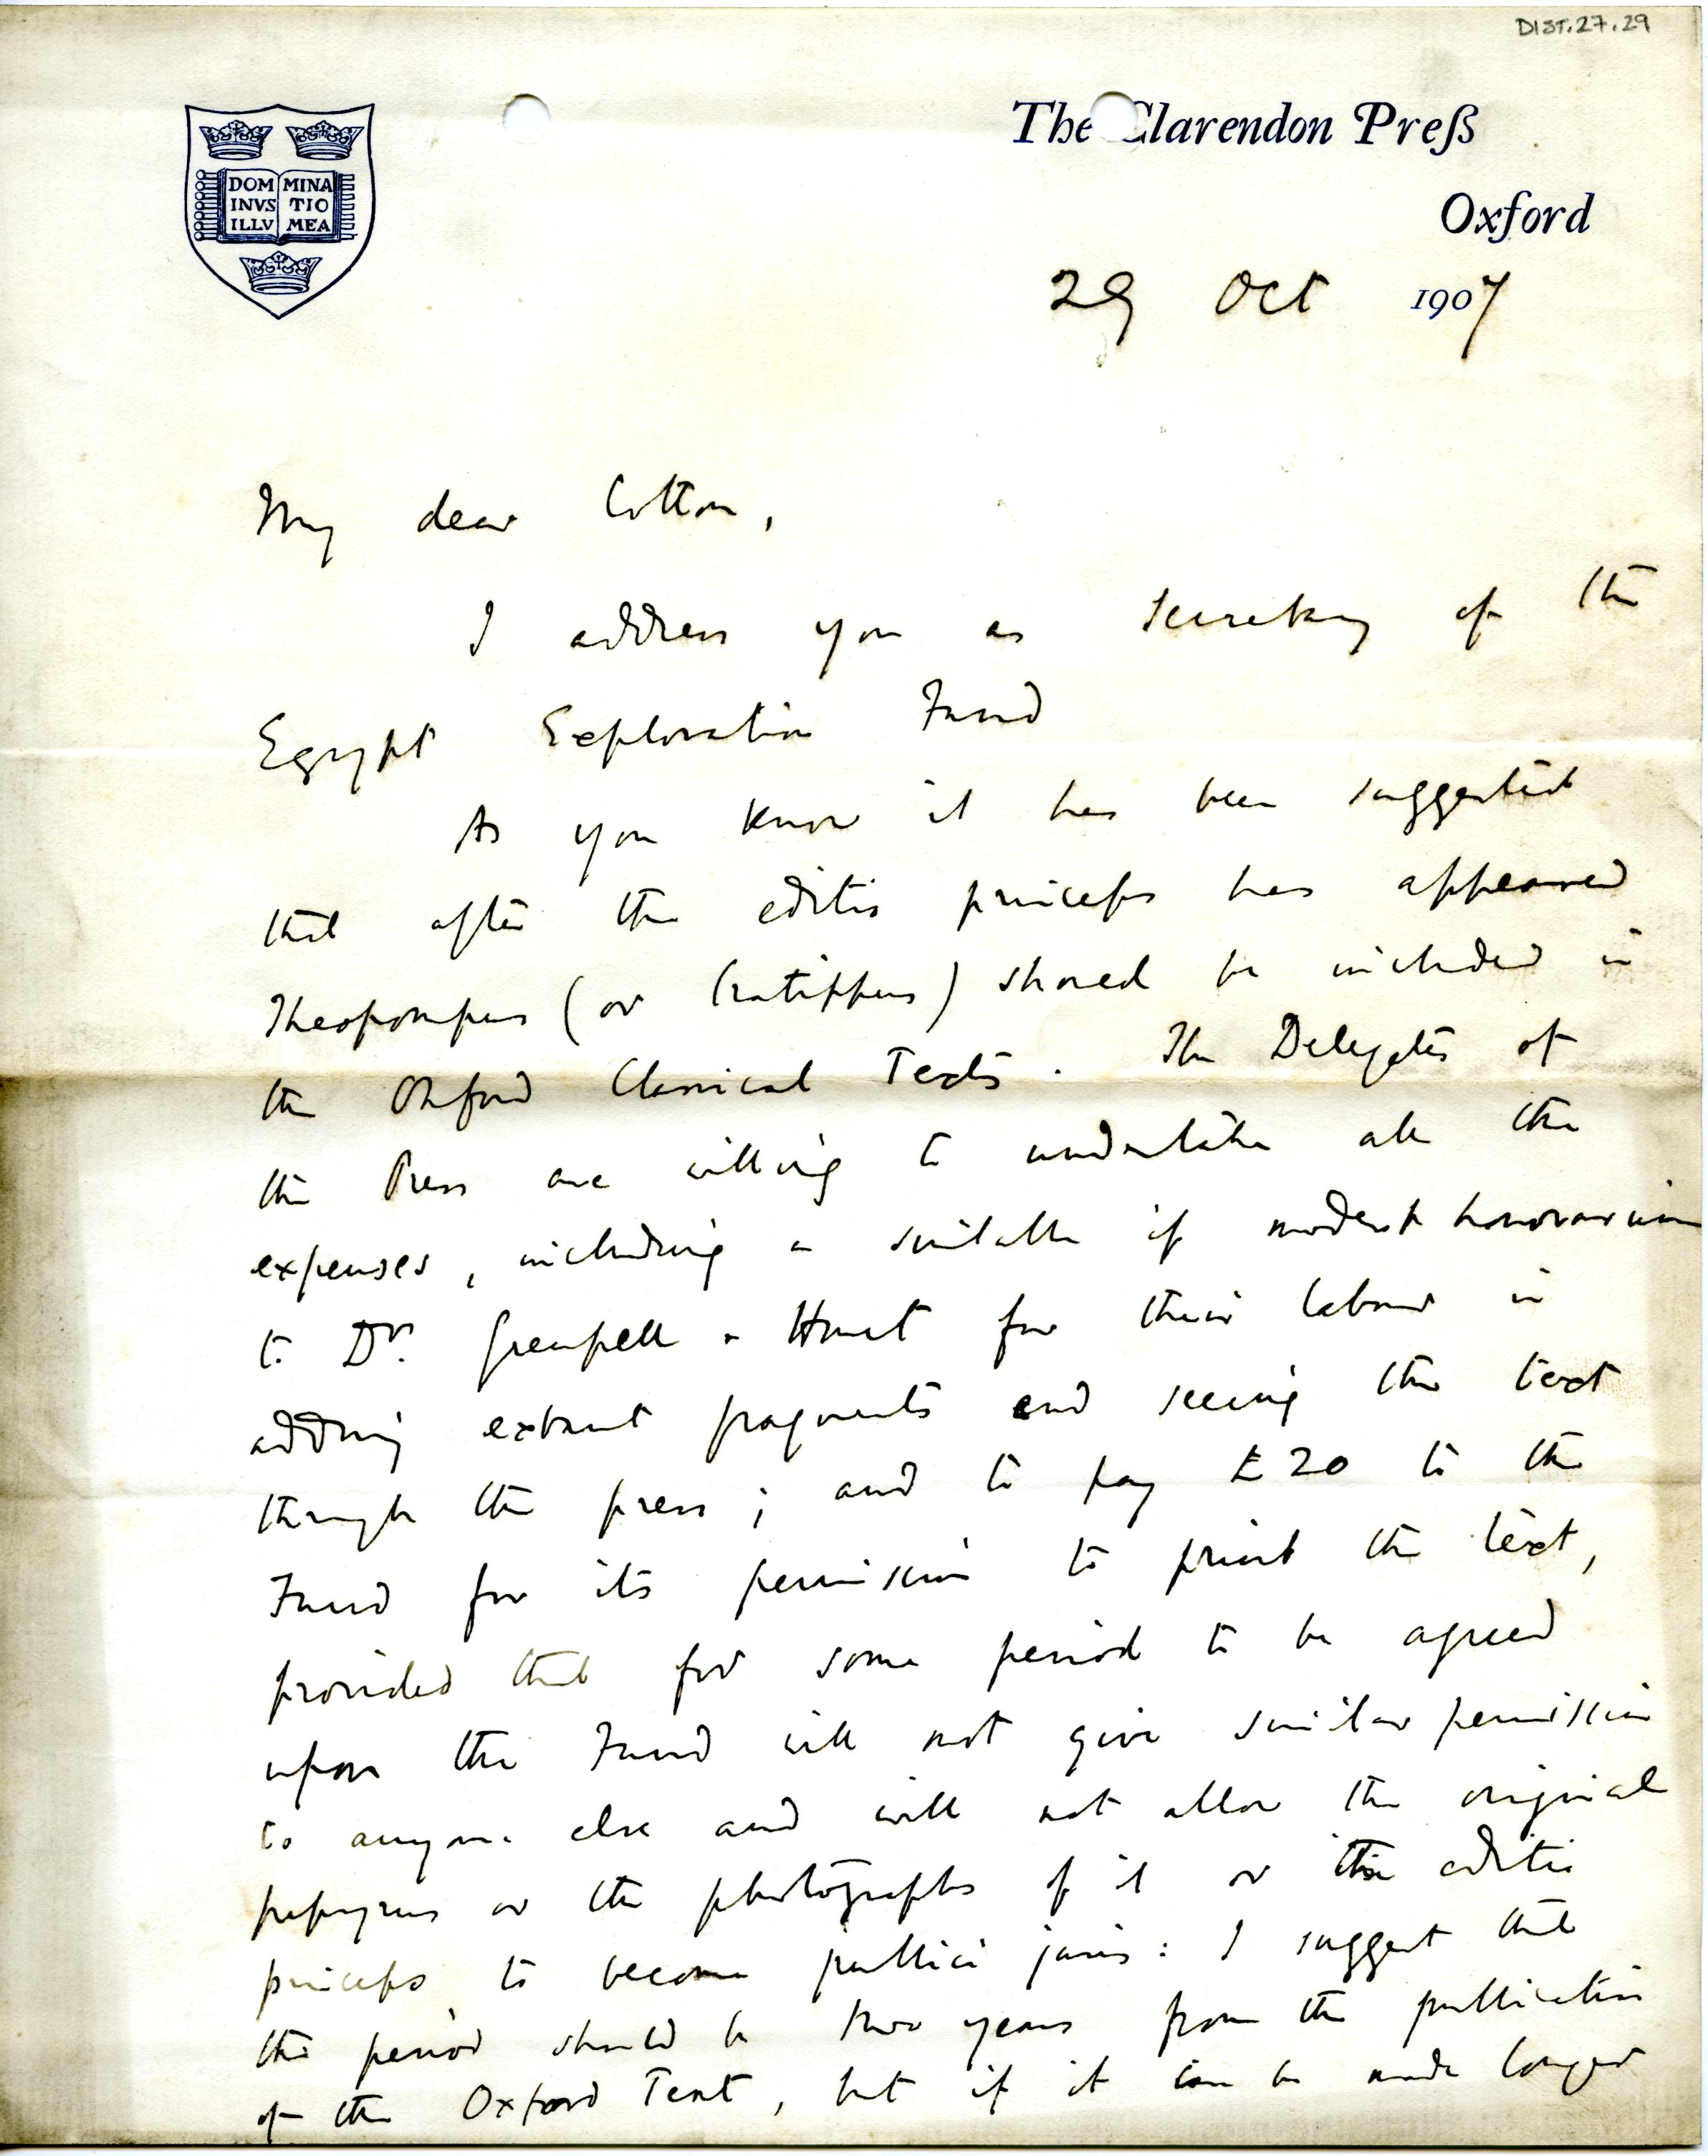 DIST.27.29
The Clarendon Preß
Oxford
DOM MINA
INVS TIO
ILLV MEA
29 Oct 1907
My dear Cotton,
I address you as Secretary of the
Egypt Exploration Fund
As you know it has been suggested
that after the editio princeps has appeared
Theopompus (or Cratippus) should be included in
the Oxford Classical Texts. The Delegates of
the Press are willing to undertake all the
expenses, including a suitable if modest honorarium
to Drs. Grenfell & Hunt for their labour in
adding extant fragments and seeing the text
through the press; and to pay £20 to the
Fund for its permission to print the text,
provided that for some period to be agreed
upon the Fund will not give similar permission
to anyone else and will not allow the original
papyrus or the photographs of it or the editio
princeps to become publici juris: I suggest that
the period should be two years from the publication
of the Oxford Text, but if it can be made longer